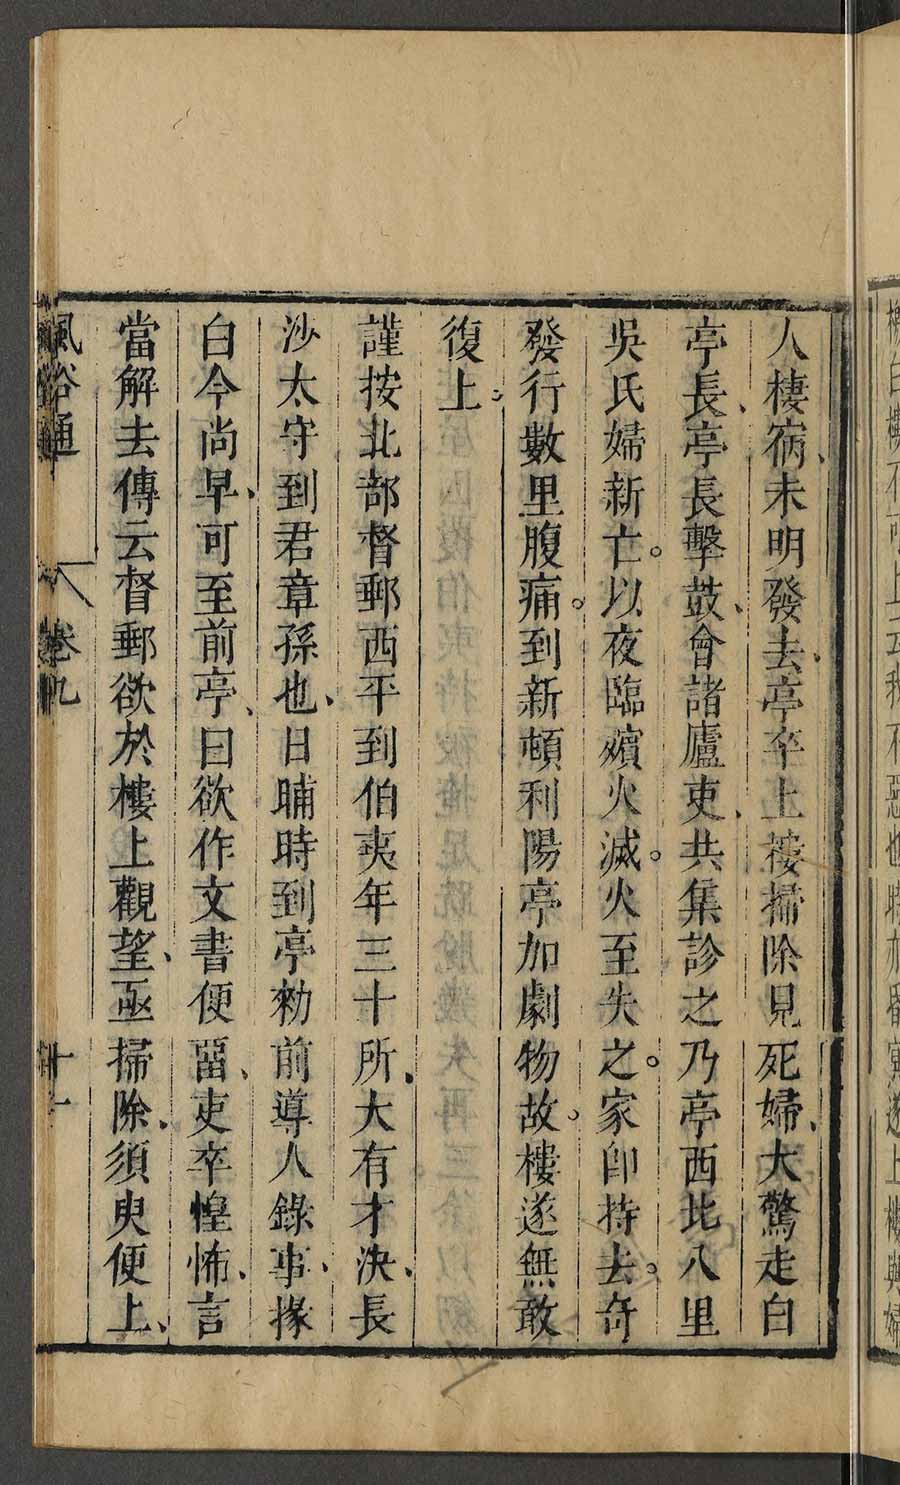 橹白樓不可上云我不惡也時亦昏冥遂上樓與婦
人棲宿未明發去亭卒上樓掃除見死婦大驚走白
亭長亭長擊鼓會諸廬吏共集診之乃亭西北八里
吳氏婦新亡以夜臨殯火滅火至失之家卽持去奇
發行數里腹痛到新頓利陽亭加劇物故樓遂無敢
復上
謹按北部督郵西平到伯夷年三十所大有才決長
沙太守到君章孫也日晡時到亭勑前導人錄事掾
白今尚早可至前亭曰欲作文書便畱吏卒惶怖言
當解去傳云督郵欲於樓上觀望亟掃除須臾便上
風俗通 卷九 十一